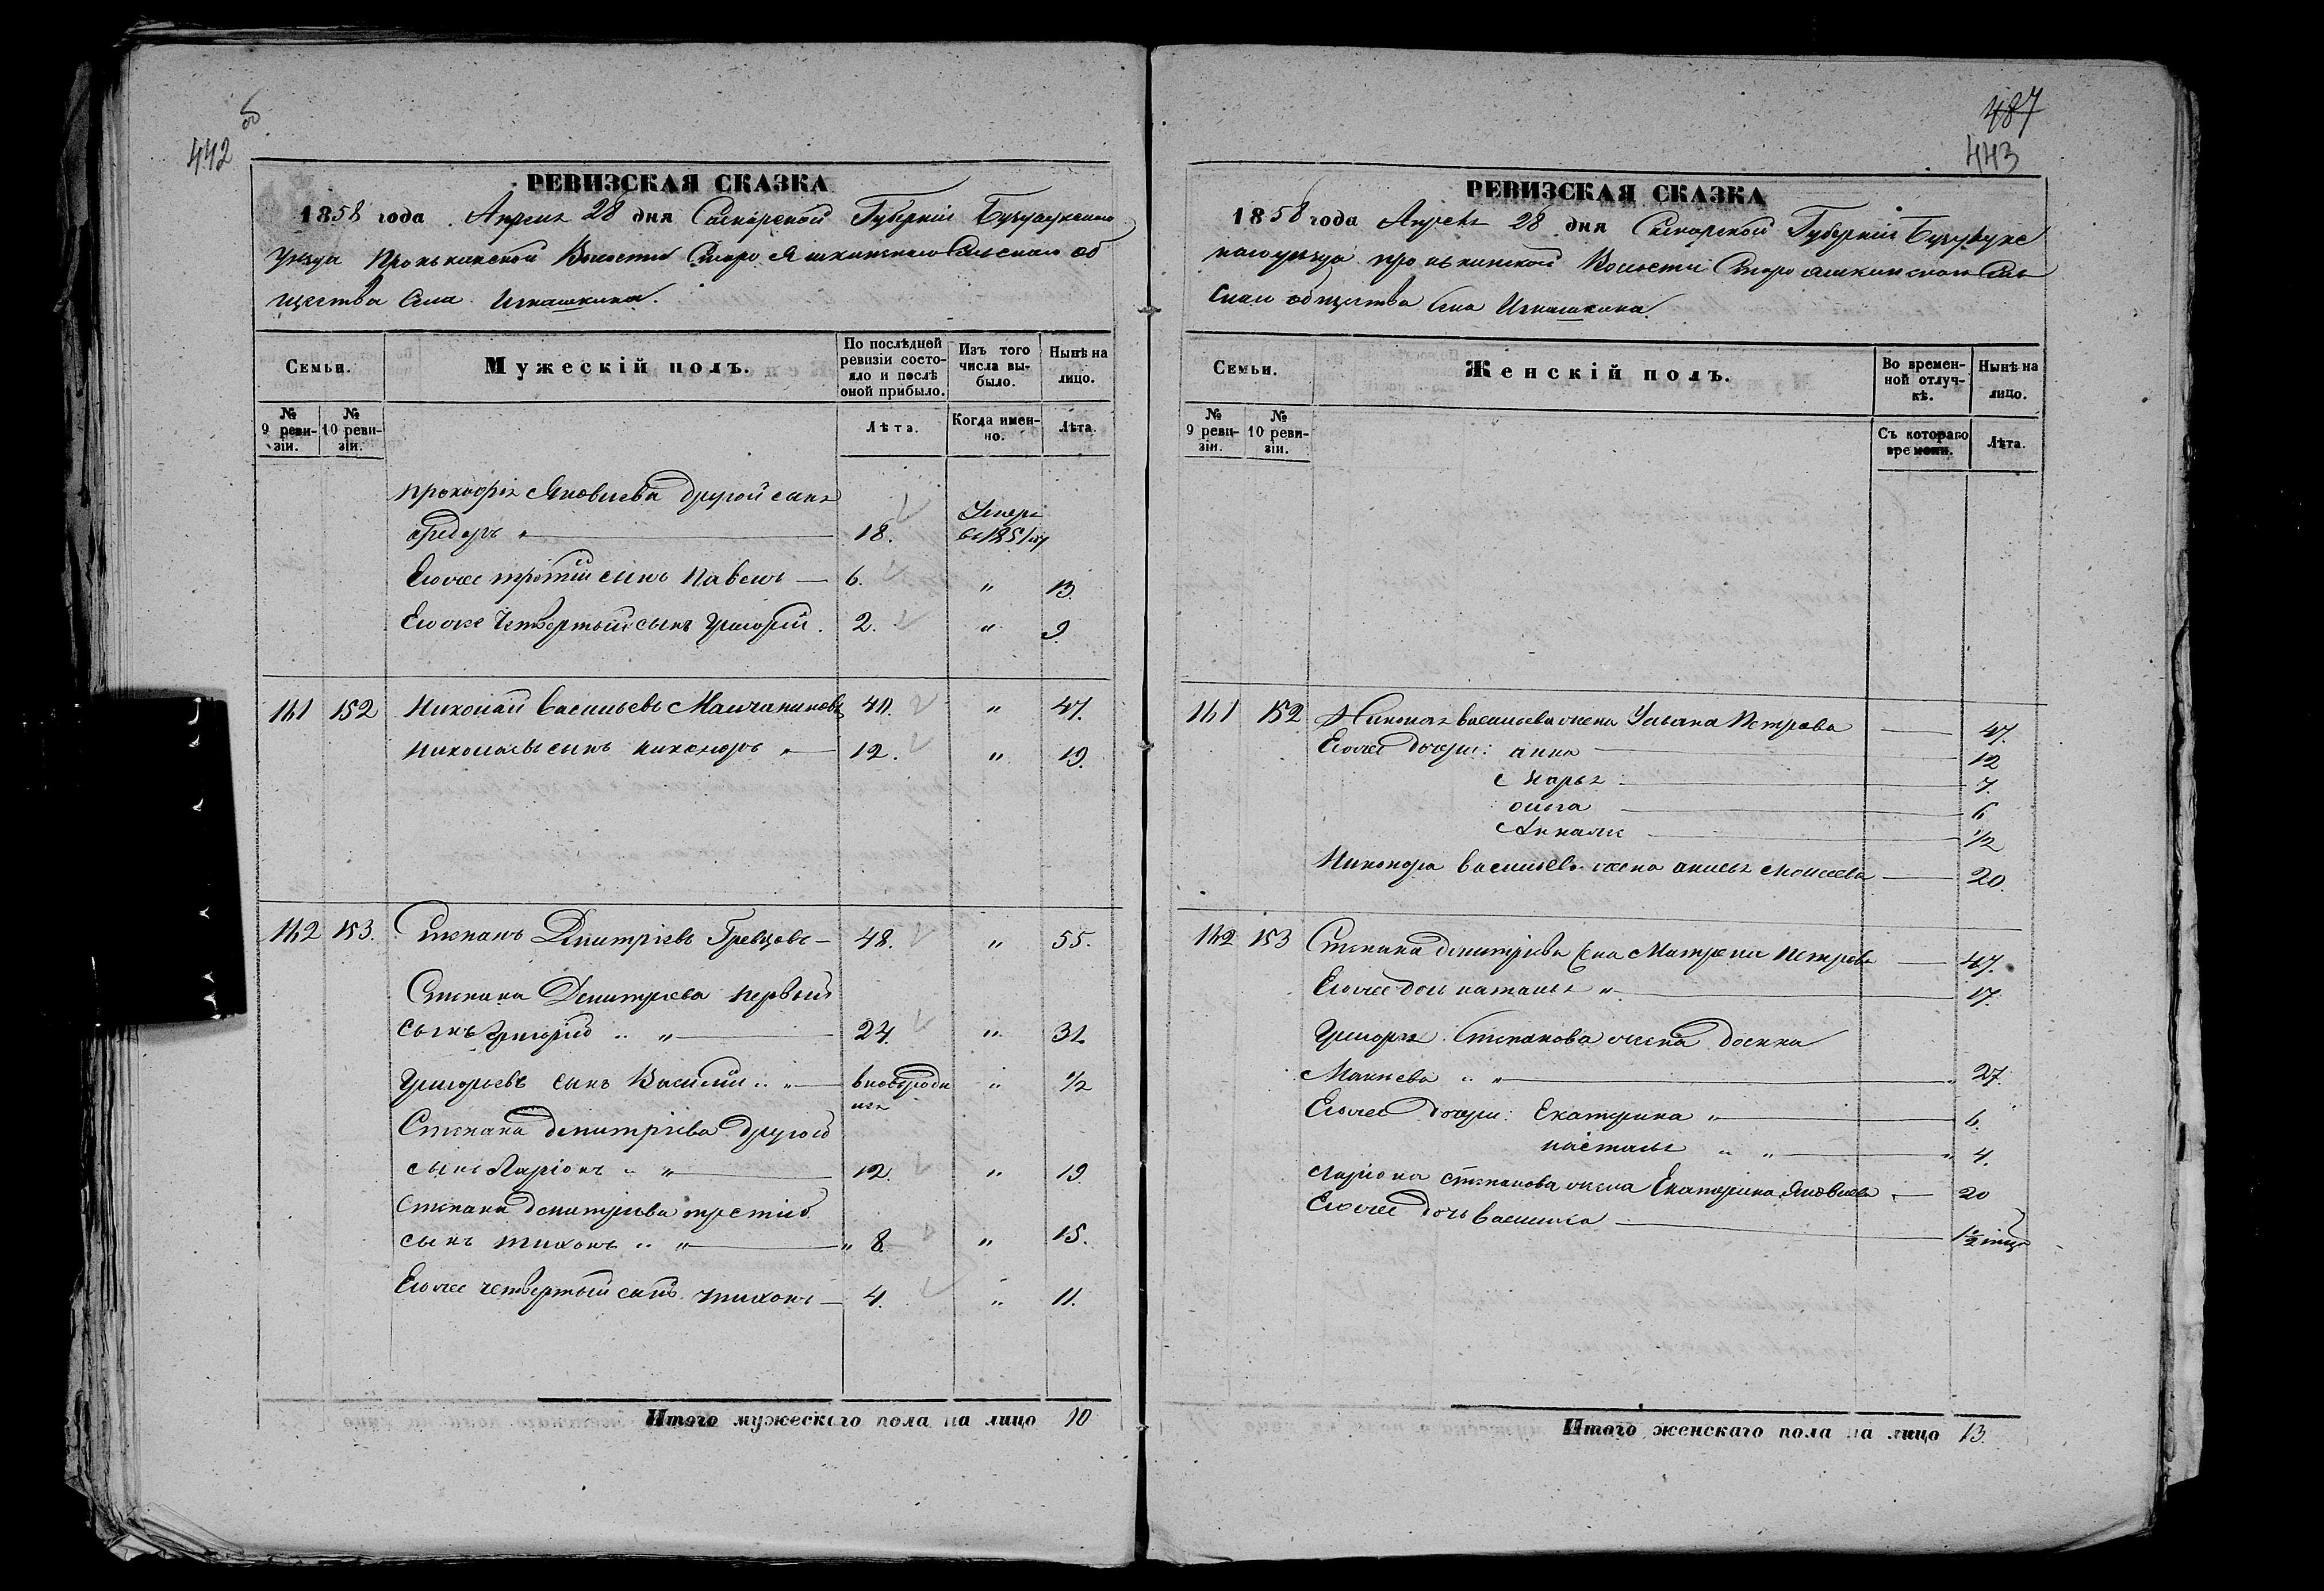 442
об
РЕВИЗСКАЯ СКАЗКА
1858 года Апреля 28 дня Самарской Губерніи Бузулукскаго
уезда Пронькинской Волости Старо Яшкинскаго Сельскаго об
щества Села Игнашкина.
Семьи.
Мужескій полъ.
По послѣдней ревизіи состояло и послѣ оной прибыло.
Изъ того числа выбыло.
Нынѣ на лицо.
№ 9 ревизіи.
№ 10 ревизіи.
Лѣта.
Когда именно.
Лѣта.
Прокофья Яковлева другой сынъ
Федоръ " 18. Умеръ въ 1851
Его же третій сынъ Павелъ — 6. " 13.
Его же четвертый сынъ Григорій. 2. " 9.
141 152 Николай Васильевъ 40. " 47.
Николаевъ сынъ Никоноръ " — 12. " 19.
142 153. Степанъ Дмитріевъ Гревцовъ — 48. " 55.
Степана Дмитріева первый
сынъ Григорій " " — 24. " 31.
Григорьевъ сынъ Василій " " — вновь роди " 1/2
лся
Степана Дмитріева другой
сынъ Ларіонъ " " — 12. " 19.
Степана Дмитріева третій
сынъ Тихонъ " " — " 8. " 15.
Его же четвертый сынъ Тихонъ — 4. " 11.
Итого мужескаго пола на лицо 10
487
443
РЕВИЗСКАЯ СКАЗКА
1858 года Апреля 28 дня Самарской Губерніи Бузулукс
каго уезда Пронькинской Волости Старо Яшкинскаго Сель
скаго общества Села Игнашкина.
Семьи.
Женскій полъ.
Во временной отлучкѣ.
Нынѣ на лицо.
№ 9 ревизіи.
№ 10 ревизіи.
Съ котораго времени.
Лѣта.
141 152 Николая Васильева жена Ульяна Петрова — 47.
Его же дочери: Анна — 12
Марья — 7.
Ольга — 6
1/2
Никонора жена Анисья Моисеева — 20.
142 153 Степана Дмитріева жена Матрена Петрова — 47.
Его же дочь Наталья " — 17.
Григорья Степанова жена
" " — 27.
Его же дочери: Екатерина " — 6.
Насталья " " — " 4.
Ларіона Степанова жена Екатерина Яковлева — 20
Его же дочь Василиса — 1/2
Итого женскаго пола на лицо 13.